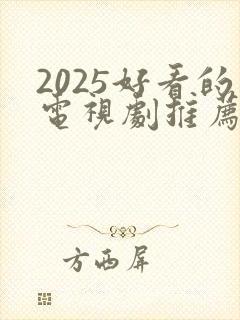 2025好看的
電視劇推薦
方西屏